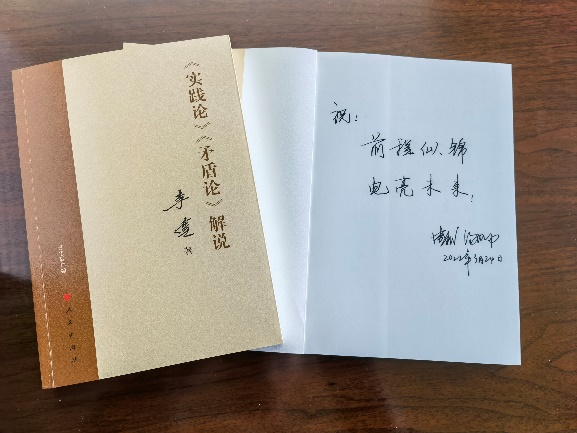 《实践论》《矛盾论》解说
李达 著
人民出版社
祝：
前程似锦
电亮未来！
2022年3月24日